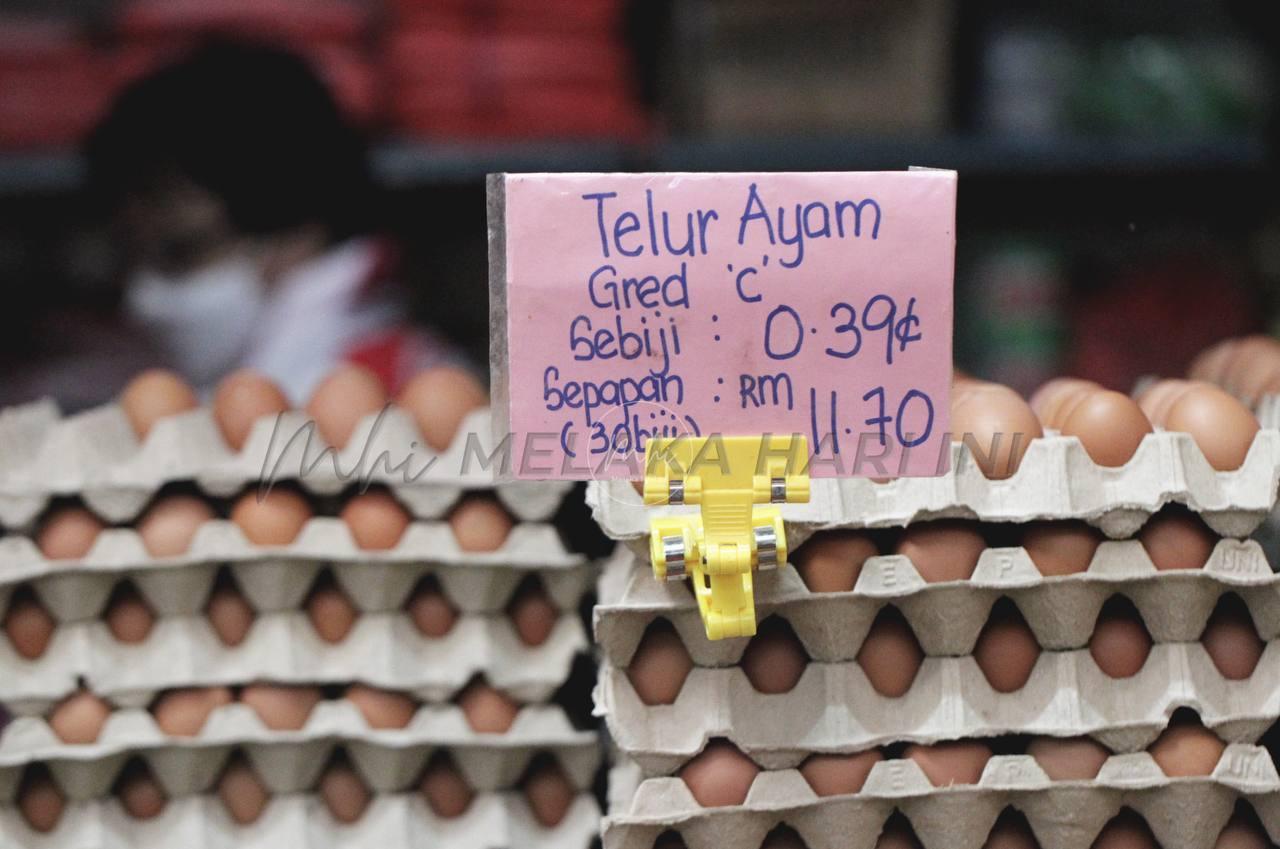 Telur Ayam
Gred 'C'
Sebiji : 0.39¢
Sepapan : RM 11.70
(30biji)
Mhi MELAKA HARI INI
E P UNI
E P UNI